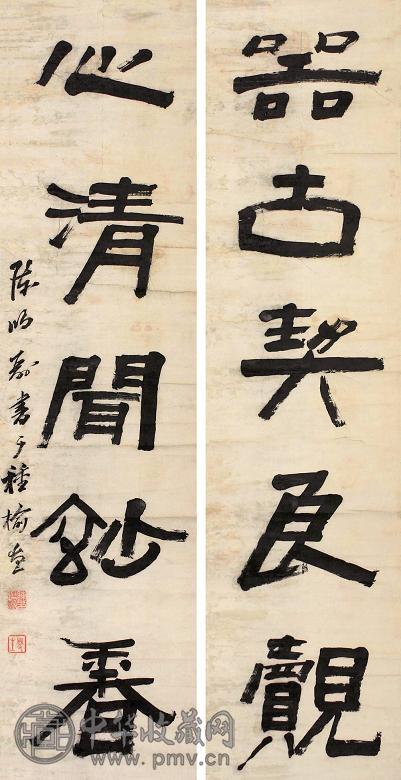 器古契良覿
心清聞玅香
陳鴻壽書于種榆盦
中华收藏网
www.pmv.cn